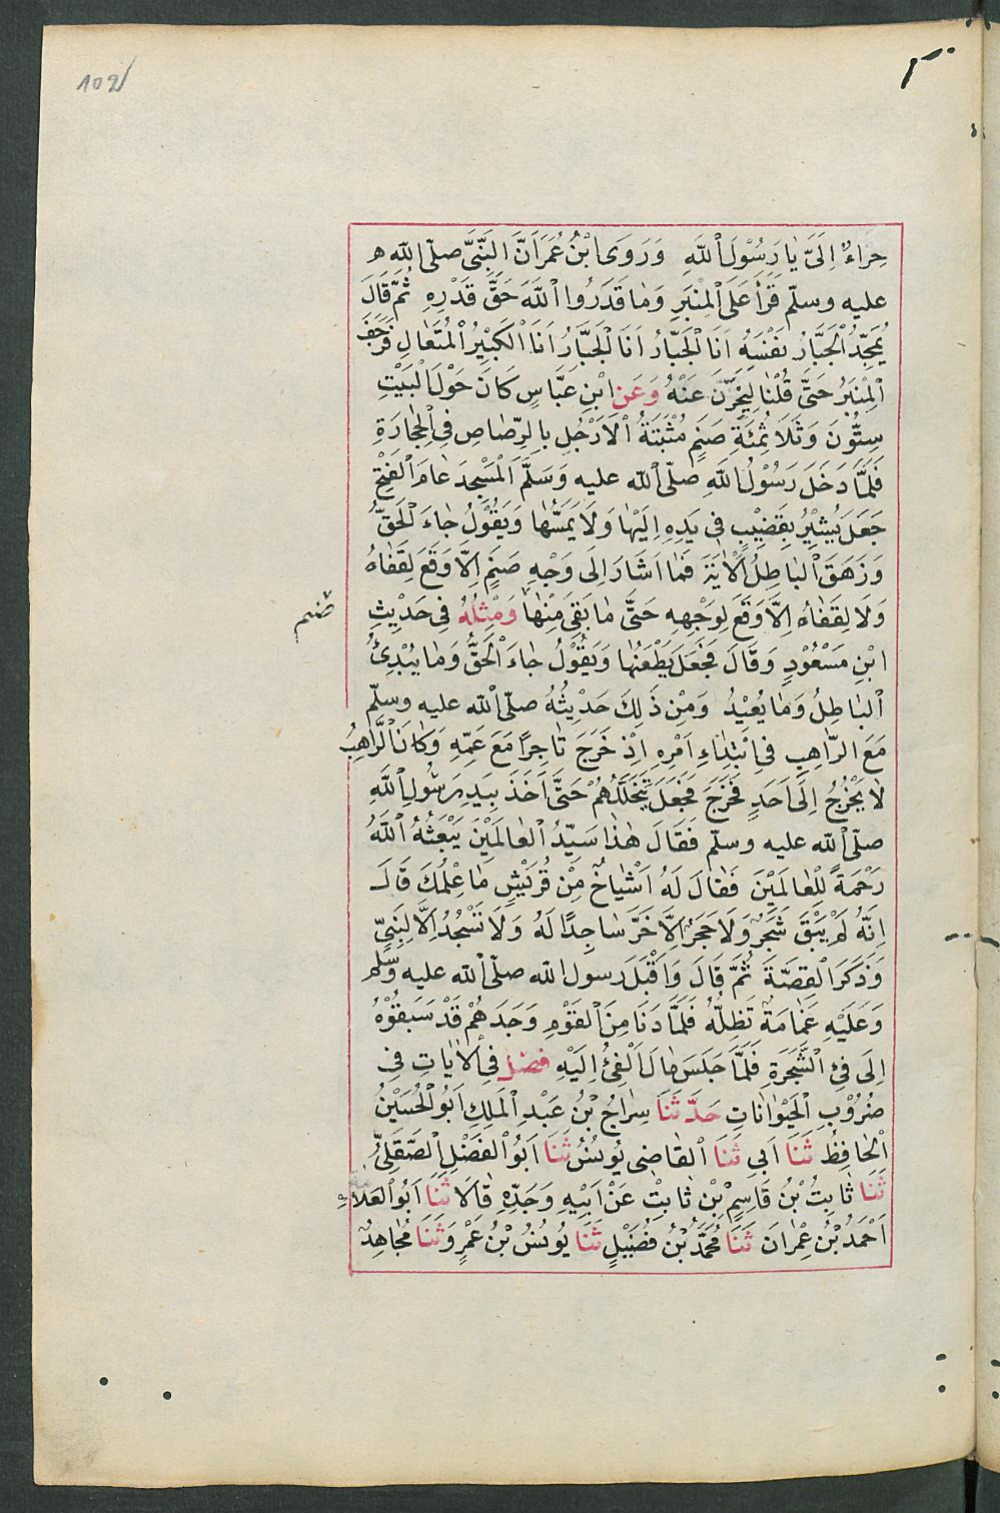 102
حِرَاءٌ اِلَىَّ يَا رَسُوْلَ اللّٰهِ وَرَوَى ابْنُ عُمَرَ اَنَّ النَّبِىَّ صلّى اللّه
عليه وسلّم قَرَأَ عَلَى الْمِنْبَرِ وَمَا قَدَرُوا اللّٰهَ حَقَّ قَدْرِهِ ثُمَّ قَالَ
يُمَجِّدُ الْجَبَّارُ نَفْسَهُ اَنَا الْجَبَّارُ اَنَا الْجَبَّارُ اَنَا الْكَبِيْرُ الْمُتَعَالِ فَرَجَفَ
الْمِنْبَرُ حَتَّى قُلْنَا لَيَخِرَّنَّ عَنْهُ وَعَنِ ابْنِ عَبَّاسٍ كَانَ حَوْلَ الْبَيْتِ
سِتُّونَ وَثَلَاثُمِئَةِ صَنَمٍ مُثْبَتَةُ الْاَرْجُلِ بِالرَّصَاصِ فِى الْحِجَارَةِ
فَلَمَّا دَخَلَ رَسُوْلُ اللّٰهِ صلّى اللّه عليه وَسَلَّمَ الْمَسْجِدَ عَامَ الْفَتْحِ
جَعَلَ يُشِيْرُ بِقَضِيْبٍ فِى يَدِهِ اِلَيْهَا وَلَا يَمَسُّهَا وَيَقُوْلُ جَاءَ الْحَقُّ
وَزَهَقَ الْبَاطِلُ الْاٰيَةَ فَمَا اَشَارَ اِلَى وَجْهِ صَنَمٍ اِلَّا وَقَعَ لِقَفَاهُ
وَلَا لِقَفَاهُ اِلَّا وَقَعَ لِوَجْهِهِ حَتَّى مَا بَقِىَ مِنْهَا وَمِثْلُهُ فِى حَدِيْثِ
صنم
ابْنِ مَسْعُوْدٍ وَقَالَ فَجَعَلَ يَطْعَنُهَا وَيَقُوْلُ جَاءَ الْحَقُّ وَمَا يُبْدِئُ
الْبَاطِلُ وَمَا يُعِيْدُ وَمِنْ ذَلِكَ حَدِيْثُهُ صلّى اللّه عليه وسلّم
مَعَ الرَّاهِبِ فِى ابْتِدَاءِ اَمْرِهِ اِذْ خَرَجَ تَاجِرًا مَعَ عَمِّهِ وَكَانَ الرَّاهِبُ
لَا يَخْرُجُ اِلَى اَحَدٍ فَخَرَجَ فَجَعَلَ يَتَخَلَّلُهُمْ حَتَّى اَخَذَ بِيَدِ رَسُولِ اللّٰهِ
صلّى اللّه عليه وسلّم فَقَالَ هٰذَا سَيِّدُ الْعَالَمِيْنَ يَبْعَثُهُ اللّٰهُ
رَحْمَةً لِلْعَالَمِيْنَ فَقَالَ لَهُ اَشْيَاخٌ مِنْ قُرَيْشٍ مَا عِلْمُكَ قَالَ
اِنَّهُ لَمْ يَبْقَ شَجَرٌ وَلَا حَجَرٌ اِلَّا خَرَّ سَاجِدًا لَهُ وَلَا تَسْجُدُ اِلَّا لِنَبِىٍّ
وَذَكَرَ الْقِصَّةَ ثُمَّ قَالَ وَاَقْبَلَ رسول اللّه صلّى اللّه عليه وسلّم
وَعَلَيْهِ غَمَامَةٌ تُظِلُّهُ فَلَمَّا دَنَا مِنَ الْقَوْمِ وَجَدَهُمْ قَدْ سَبَقُوْهُ
اِلَى فَئِ الشَّجَرَةِ فَلَمَّا جَلَسَ مَالَ الْفَئُ اِلَيْهِ فصل فِى الْاٰيَاتِ فِى
ضُرُوْبِ الْحَيْوَانَاتِ حَدَّثَنَا سِرَاجُ بْنُ عَبْدِ الْمَلِكِ اَبُو الْحُسَيْنُ
الْحَافِظُ ثَنَا اَبِى ثَنَا الْقَاضِى يُونُسُ ثَنَا اَبُو الْفَضْلِ الصَّقَلِىُّ
ثَنَا ثَابِتُ بْنُ قَاسِمِ بْنِ ثَابِتٍ عَنْ اَبِيْهِ وَجَدِّهِ قَالَا ثَنَا اَبُو الْعَلَاءِ
اَحْمَدُ بْنُ عِمْرَانَ ثَنَا مُحَمَّدُ بْنُ فُضَيْلٍ ثَنَا يُونُسُ بْنُ عَمْرٍو ثَنَا مُجَاهِدٌ